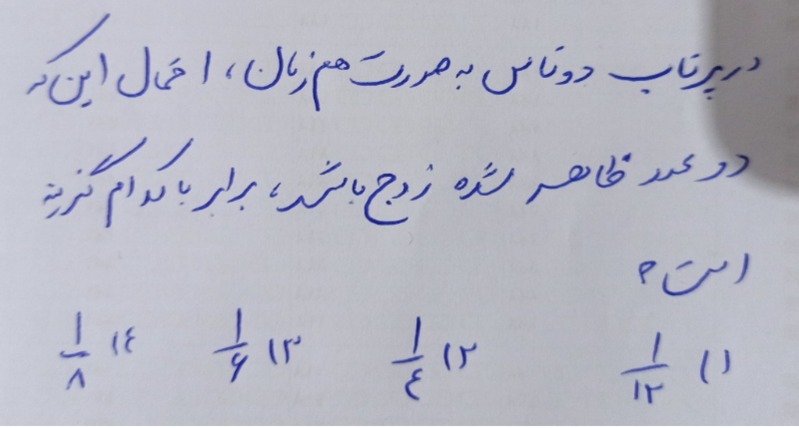 در پرتاب دو تاس به صورت هم زمان، احتمال این که
دو عدد ظاهر شده زوج باشد، برابر با کدام گزینه
است؟
۱) ۱/۱۲ ۲) ۱/۴ ۳) ۱/۶ ۴) ۱/۸